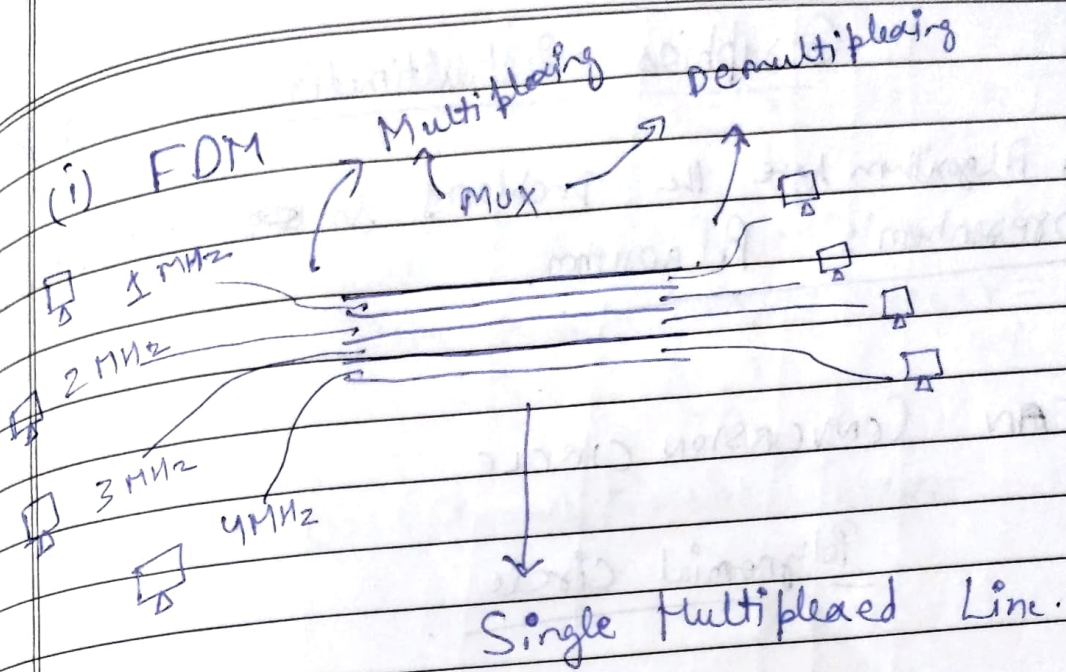 Demultiplexing
Multiplexing
(i) FDM
MUX
1 MHz
2 MHz
3 MHz
4MHz
Single Multiplexed Line.